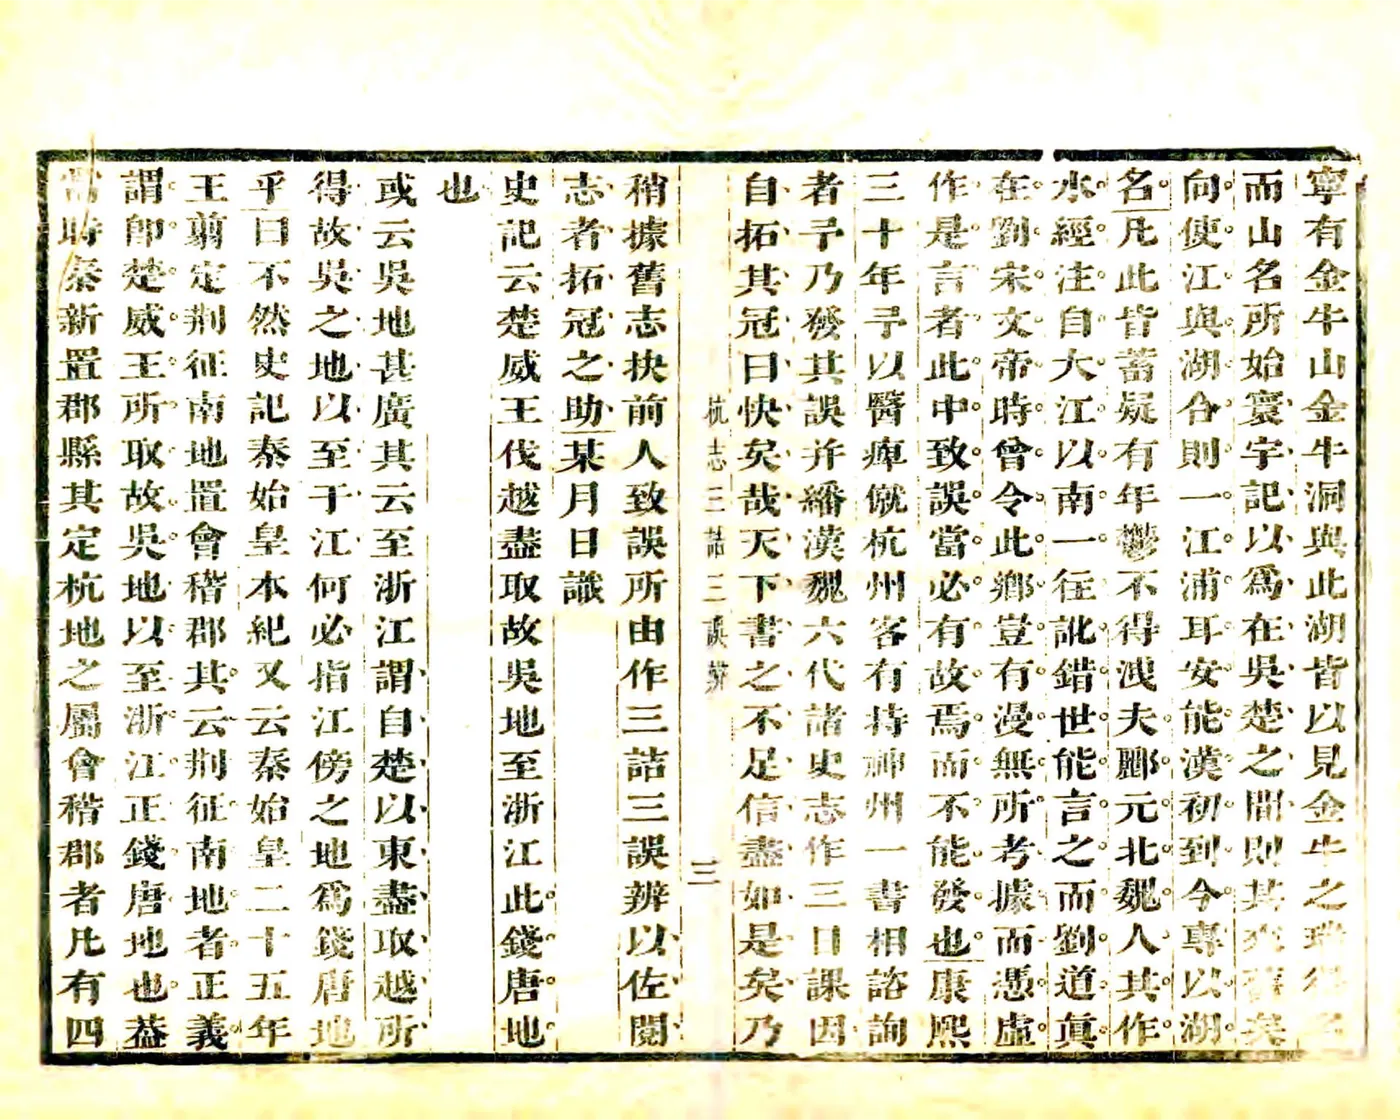 寧有金牛山金牛洞與此湖皆以見金牛之瑞得名
而山名所始寰宇記以爲在吳楚之間則其來舊矣
向使江與湖合則一江浦耳安能漢初到今專以湖
名凡此皆蓄疑有年鬱不得洩夫酈元北魏人其作
水經注自大江以南一往訛錯世能言之而劉道真
在劉宋文帝時曾令此鄉豈有漫無所考據而憑虛
作是言者此中致誤當必有故焉而不能發也康熙
三十年予以醫痺僦杭州客有持神州一書相諮詢
者予乃發其誤并繙漢魏六代諸史志作三日課因
自拓其冠曰快矣哉天下書之不足信盡如是矣乃
杭志三詰三誤辨
三
稍據舊志抉前人致誤所由作三詰三誤辨以佐閱
志者拓冠之助某月日識
史記云楚威王伐越盡取故吳地至浙江此錢唐地
也
或云吳地甚廣其云至浙江謂自楚以東盡取越所
得故吳之地以至于江何必指江傍之地爲錢唐地
乎曰不然史記秦始皇本紀又云秦始皇二十五年
王翦定荆征南地置會稽郡其云荆征南地者正義
謂即楚威王所取故吳地以至浙江正錢唐地也葢
當時秦新置郡縣其定杭地之屬會稽郡者凡有四